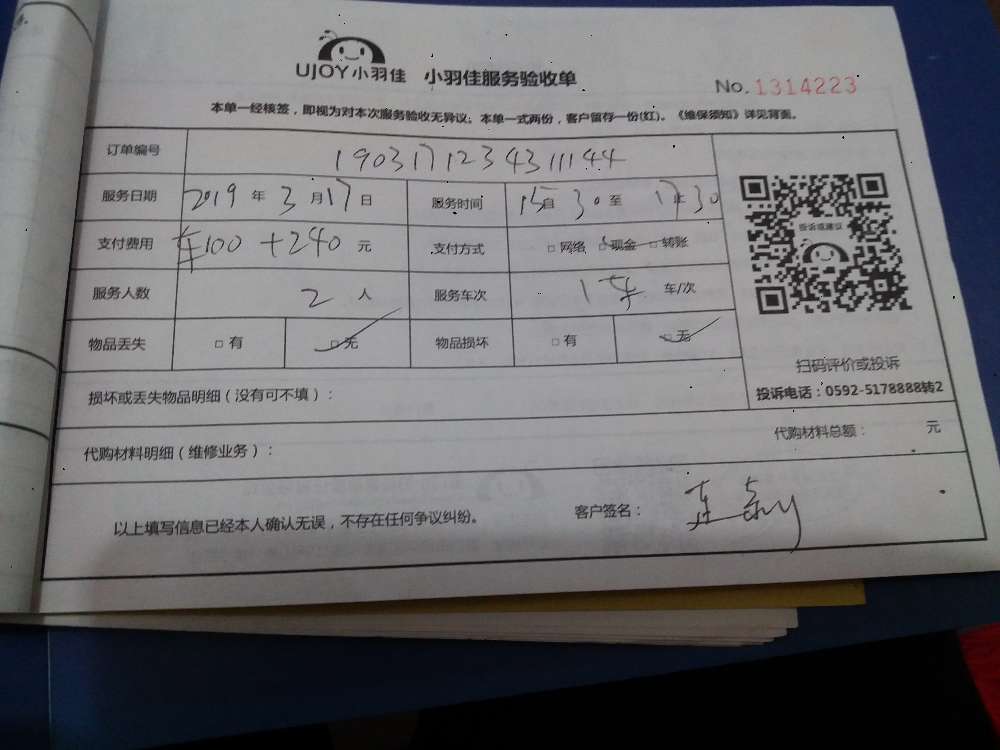 UJOY小羽佳 小羽佳服务验收单
No. 1314223
本单一经核签，即视为对本次服务验收无异议；本单一式两份，客户留存一份(红)。《维保须知》详见背面。
订单编号 190317123431144
服务日期 2019 年 3 月 17 日 服务时间 15 自 30 至 17 30
支付费用 ¥100 +240 元 支付方式 □ 网络 □ 现金 □ 转账
投诉或建议
服务人数 2 人 服务车次 1车 车/次
物品丢失 □ 有 □ 无 物品损坏 □ 有 □ 无
扫码评价或投诉
投诉电话：0592-5178888转2
损坏或丢失物品明细（没有可不填）：
代购材料明细（维修业务）： 代购材料总额： 元
以上填写信息已经本人确认无误，不存在任何争议纠纷。 客户签名：